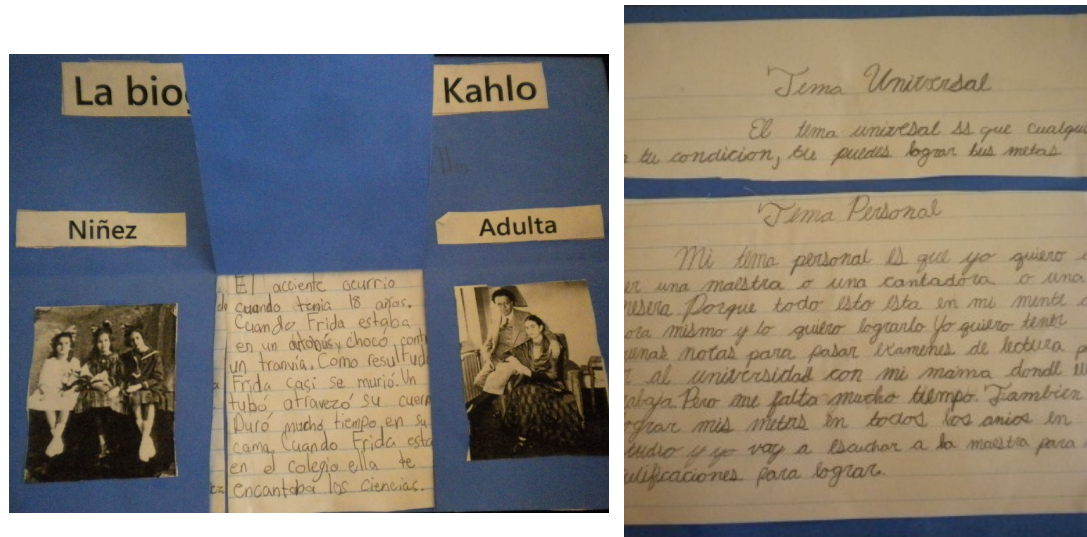 La bio
Kahlo
Niñez
Adulta
El acciente ocurrio
de cuando tenia 18 años.
Cuando Frida estaba
en un autobús y chocó, cont
un tranvía. Como resultud
Frida casi se murió. Un
tubó atravezó su cuerp
Duró mucho tiempo en su
cama. Cuando Frida esta
en el colegio ella te
encantaba los ciencias.
Tema Universal
El tema univesal es que cualqui
tu condicion, tu puedes lograr tus metas
Tema Personal
Mi tema personal es que yo quiero
er una maestra o una cantadora o una
mesera Porque todo esto esta en mi mente
ora mismo y lo quiero lograrlo Yo quiero tener
uenas notas para pasar examenes de lectura p
r al universidad con mi mama donde
abaja. Pero me falta mucho tiempo. Tambien
grar mis metas en todos los anios en
tudio y yo voy a esauchar a la maestra para
alificaciones para lograr.